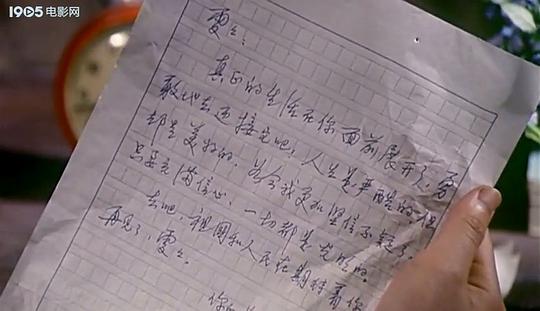 1905电影网
雯雯：
真正的生活在你面前展开了，勇
敢地去迎接它吧！人生是严酷的，但
却是美好的。
只要充满信心，一切都是光明的。
去吧，祖国和人民在期待着你
再见了，雯雯。
你的